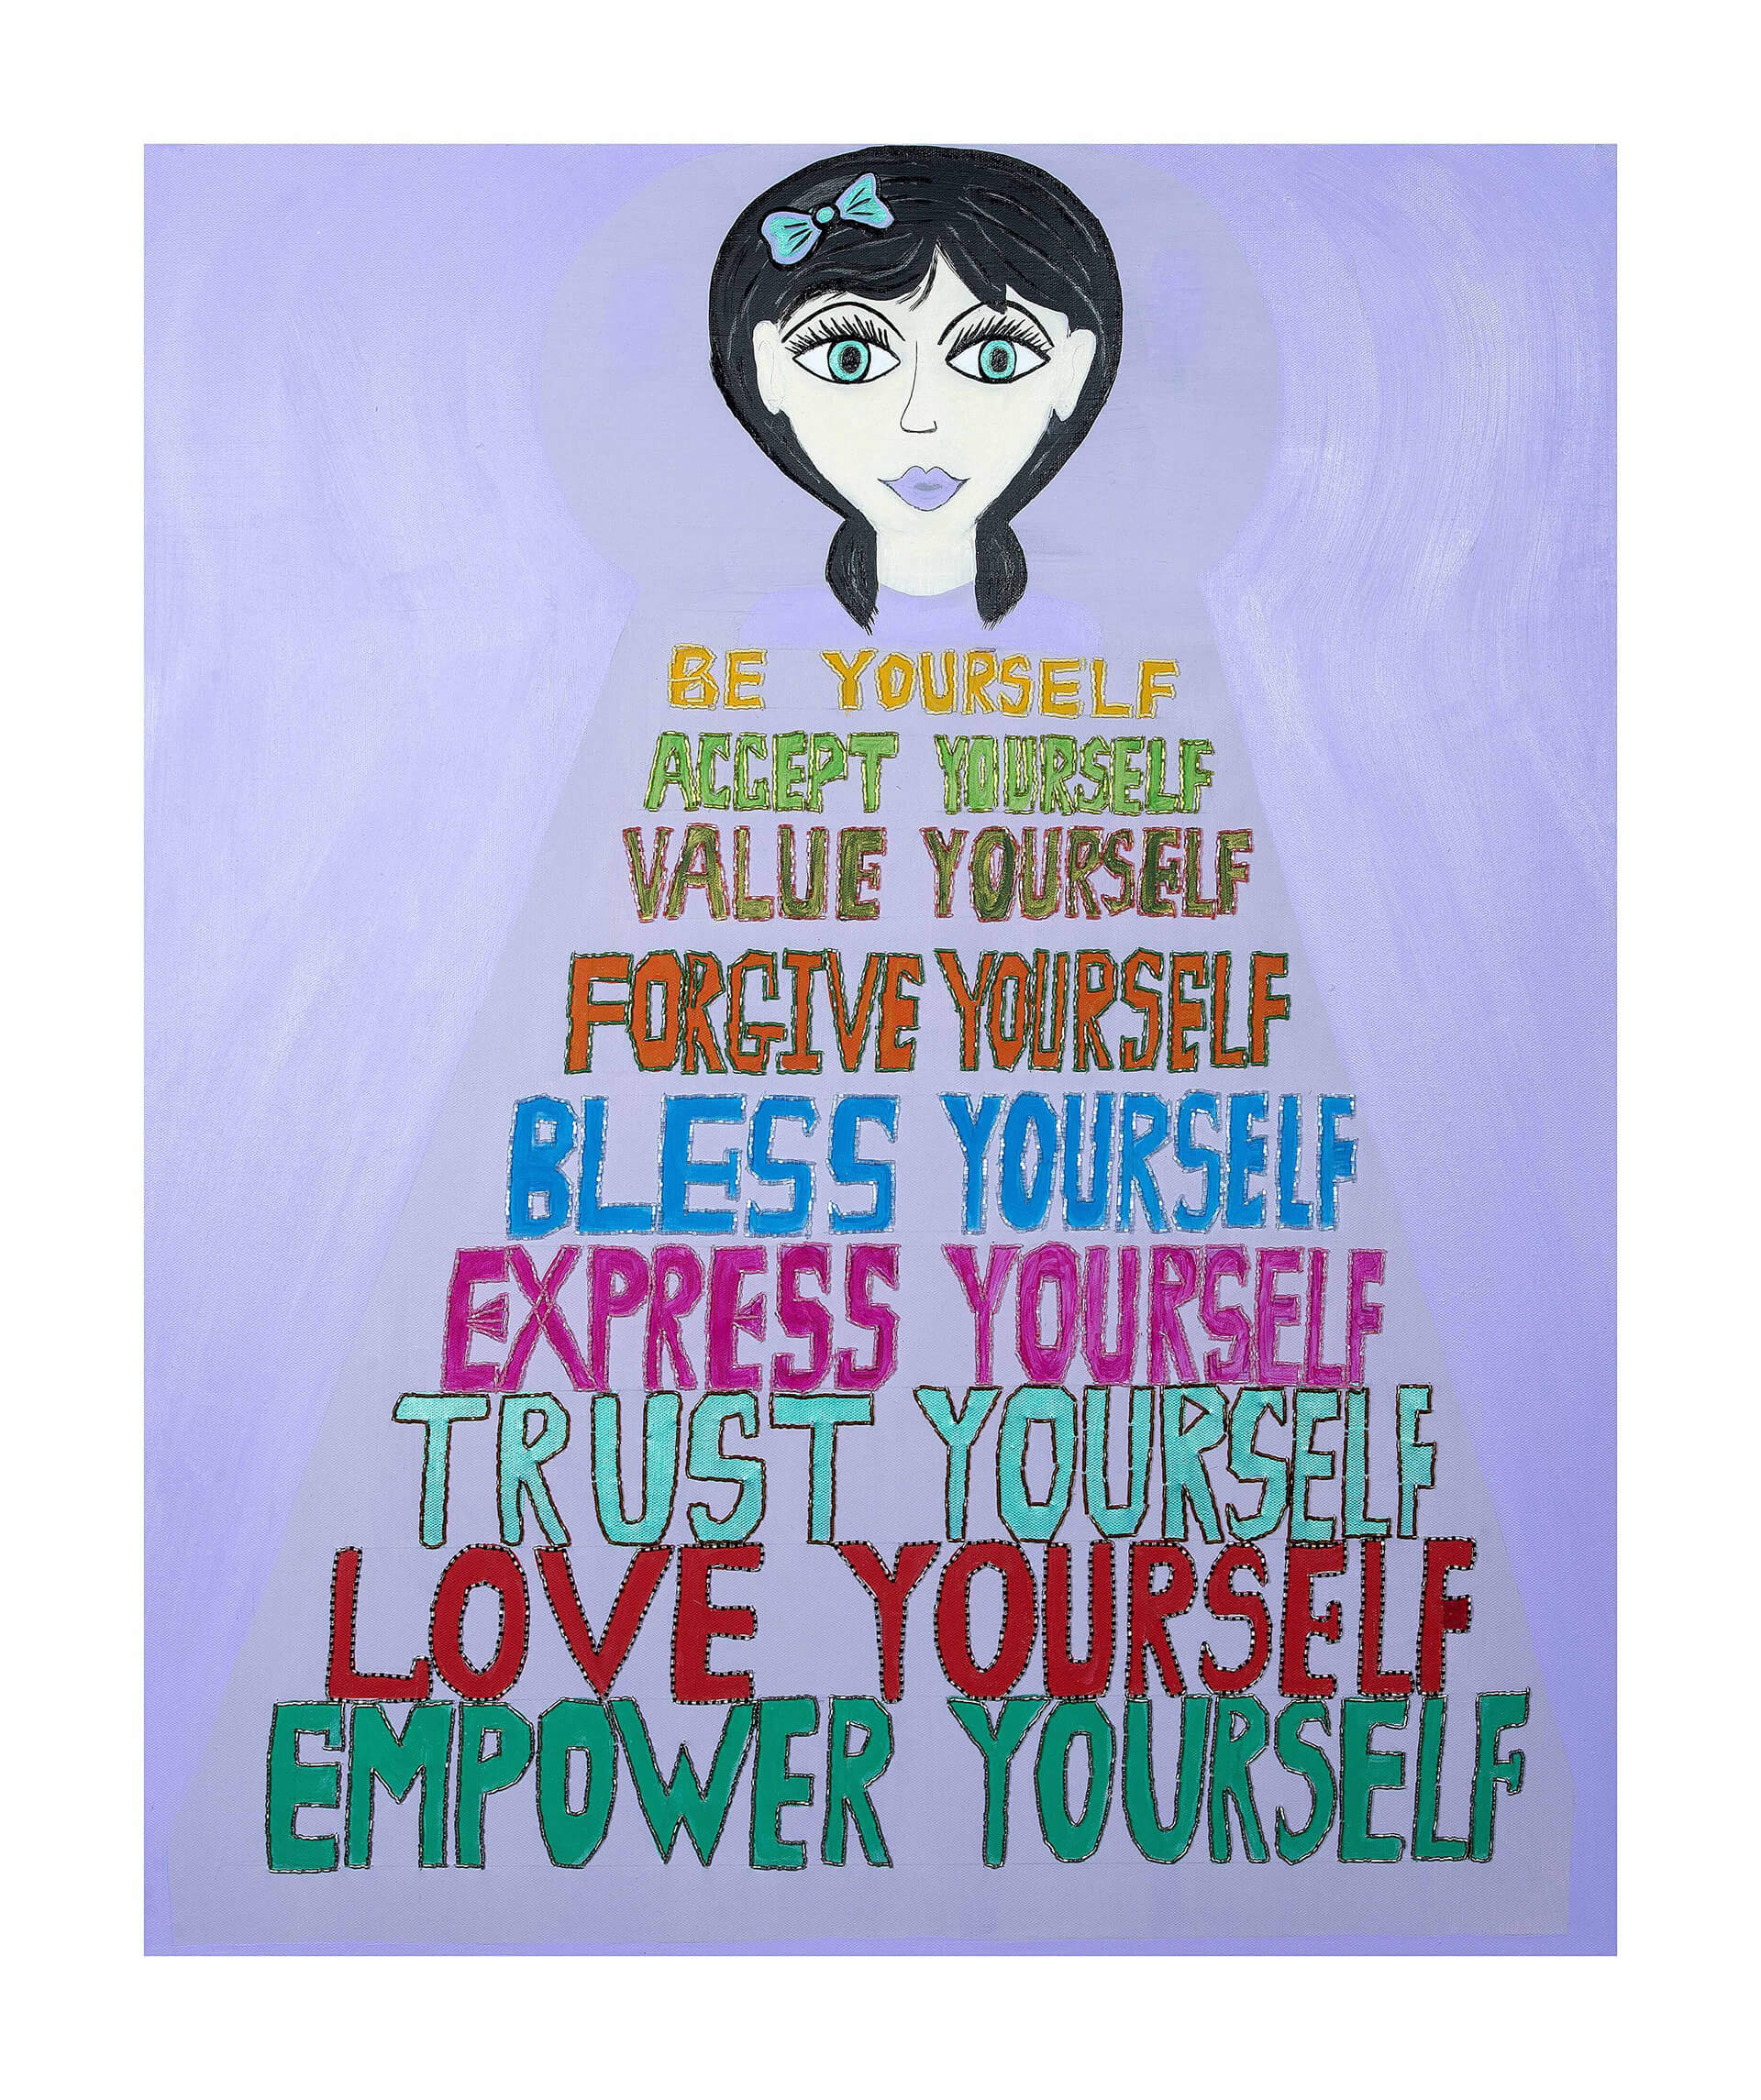 BE YOURSELF
ACCEPT YOURSELF
VALUE YOURSELF
FORGIVE YOURSELF
BLESS YOURSELF
EXPRESS YOURSELF
TRUST YOURSELF
LOVE YOURSELF
EMPOWER YOURSELF